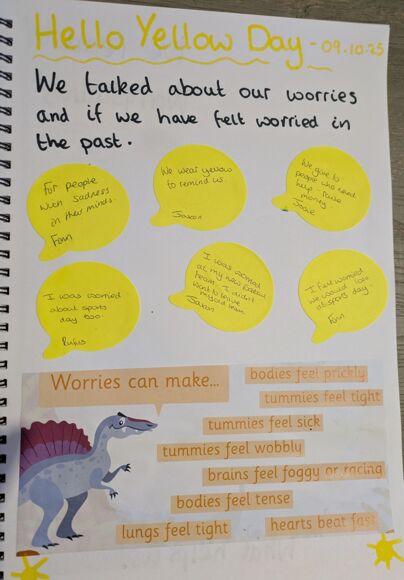 Hello Yellow Day - 09.10.25
We talked about our worries
and if we have felt worried in
the past.
For people
with sadness
in their minds.
Finn
We wear yellow
to remind us.
Jaxon
We give to
people who need
help. Raise
money.
Josie
I was worried
about sports
day too.
Rufus
I was worried
at my new football
team. I didn't
want to leave
my old team.
Jaxon
I feel worried
we would lose
at sports day.
Finn
Worries can make...
bodies feel prickly
tummies feel tight
tummies feel sick
tummies feel wobbly
brains feel foggy or racing
bodies feel tense
lungs feel tight
hearts beat fast